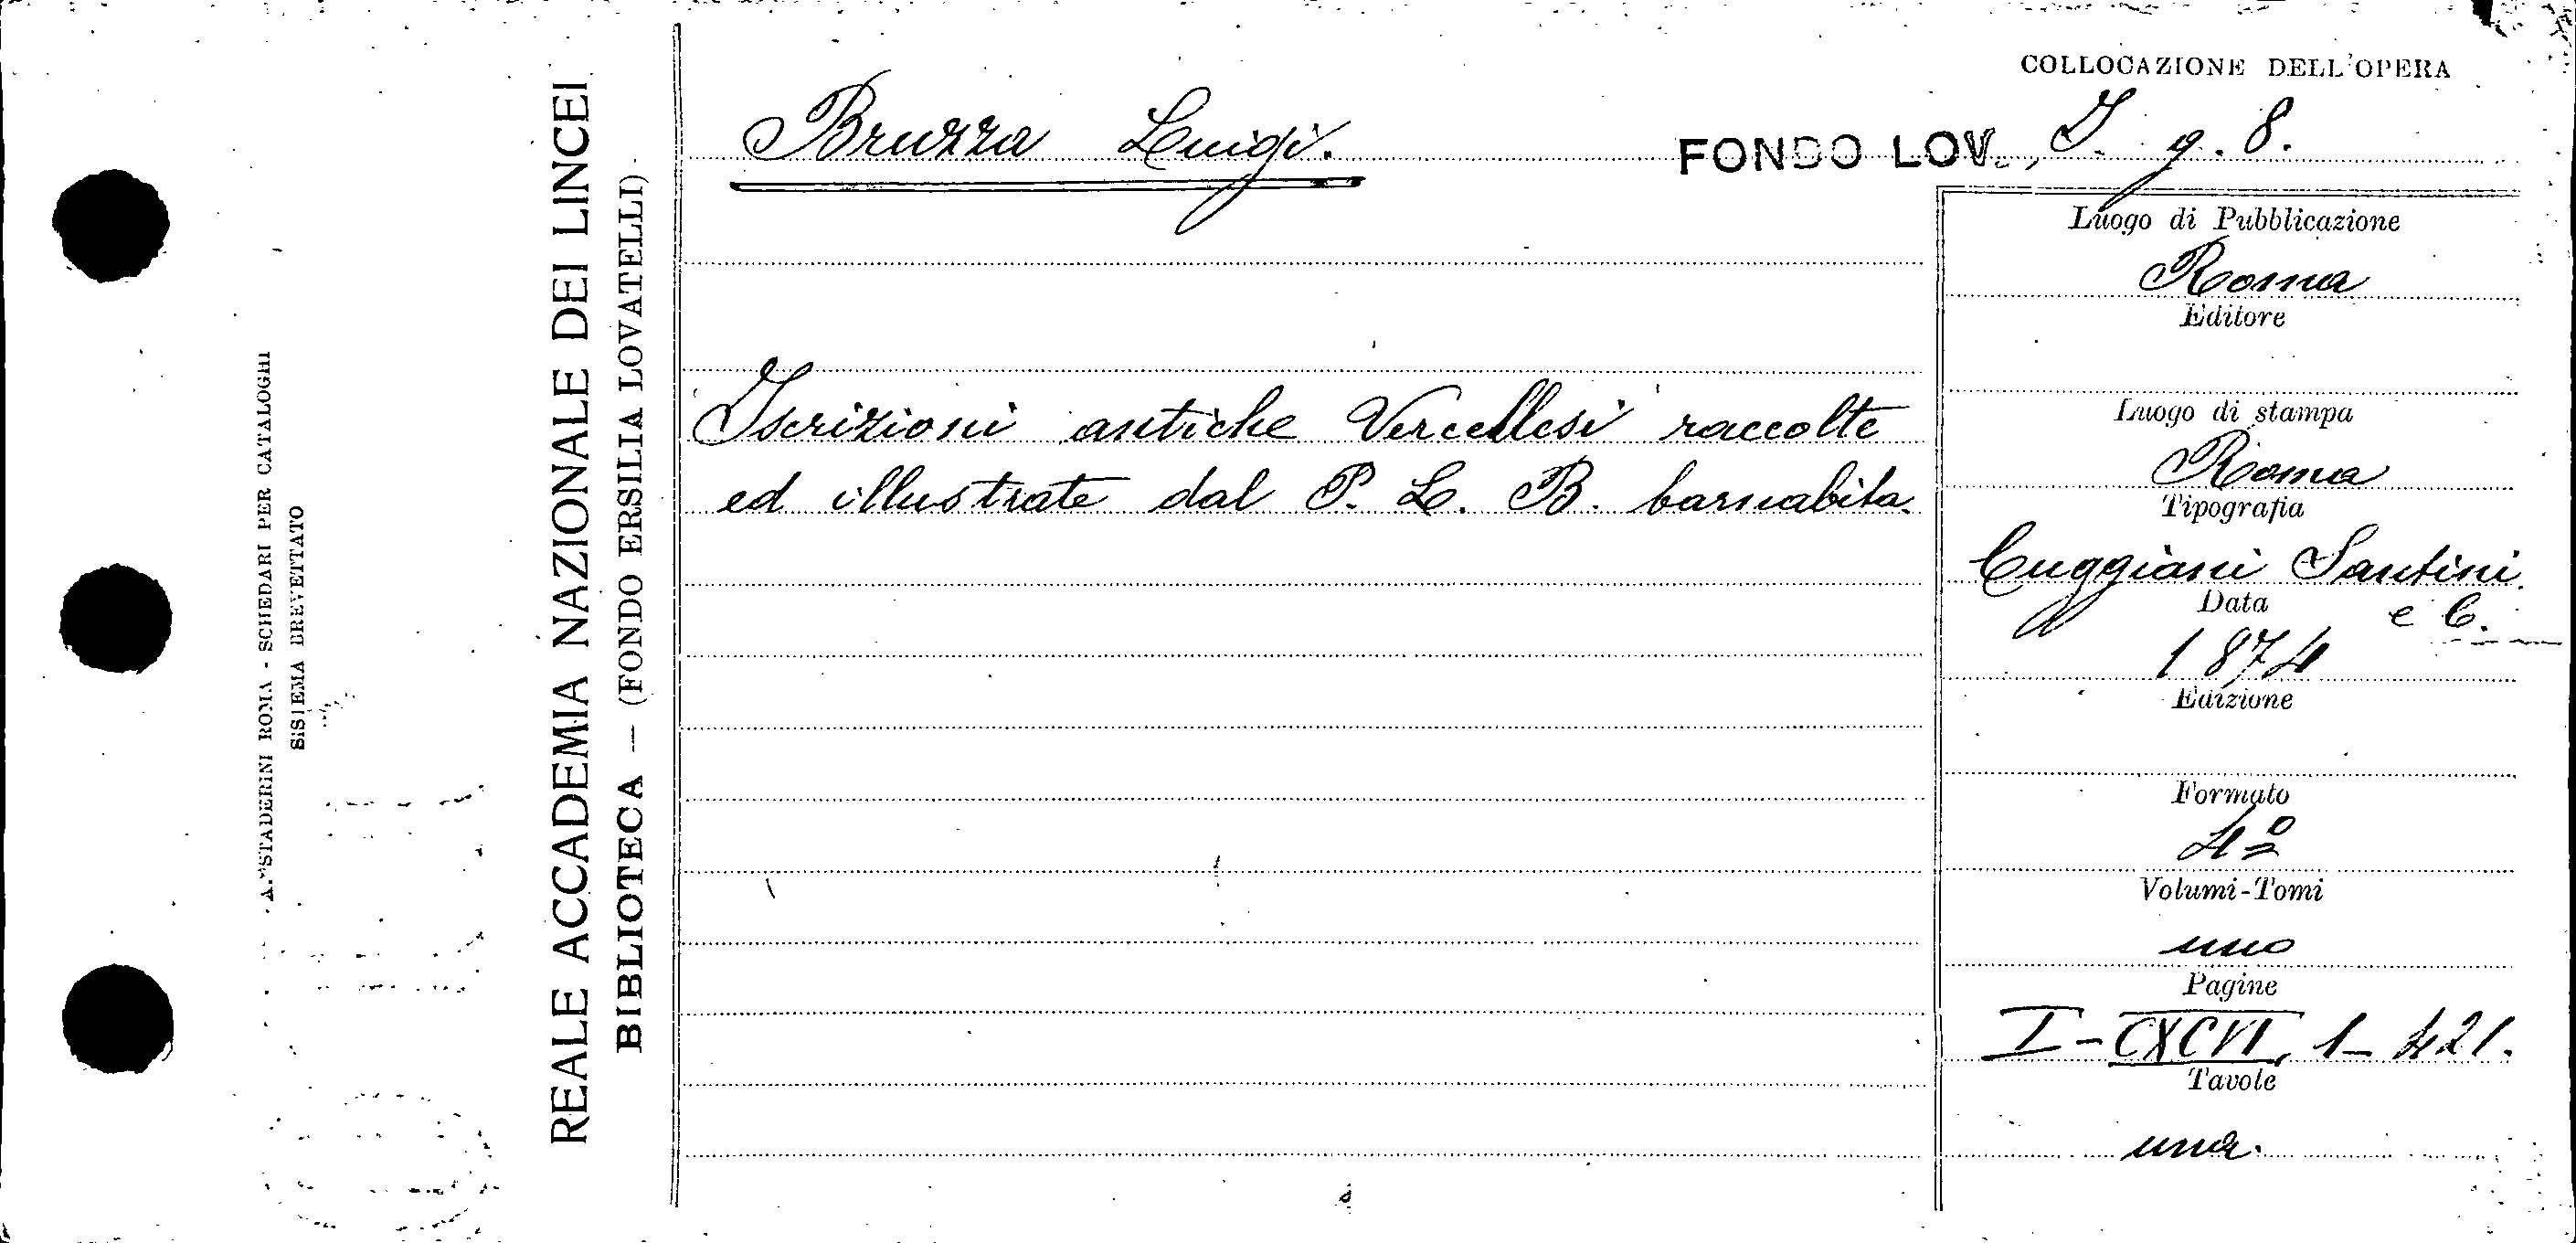 A. STADERINI ROMA - SCHEDARI PER CATALOGHI
SISTEMA BREVETTATO
REALE ACCADEMIA NAZIONALE DEI LINCEI
BIBLIOTECA — (FONDO ERSILIA LOVATELLI)
COLLOCAZIONE DELL'OPERA
Bruzza Luigi.
FONDO LOV., I. g. 8.
Iscrizioni antiche Vercellesi raccolte
ed illustrate dal P. L. B. barnabita.
Luogo di Pubblicazione
Roma
Editore
Luogo di stampa
Roma
Tipografia
Cuggiani Santini
e C.
Data
1874
Edizione
Formato
4º
Volumi-Tomi
uno
Pagine
I-CXCVI, 1-421.
Tavole
una.